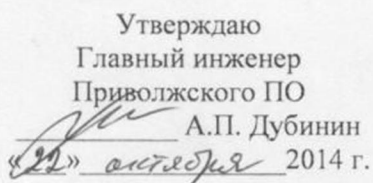 Утверждаю
Главный инженер
Приволжского ПО
А.П. Дубинин
«22» октября 2014 г.